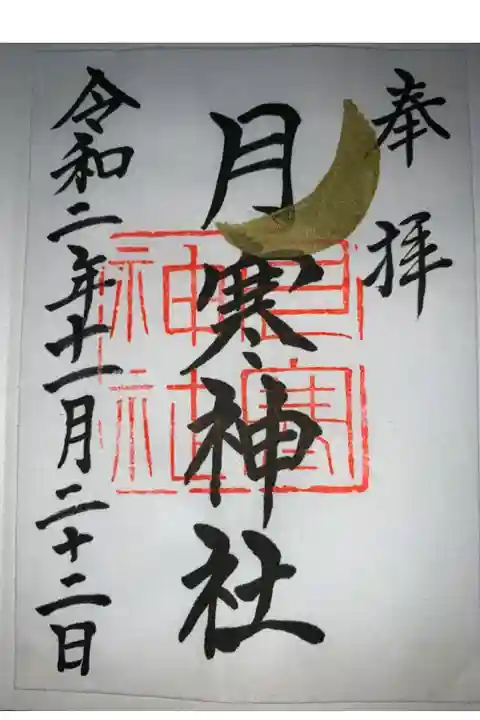 奉拝
月寒神社
月寒神社
令和二年十一月二十二日